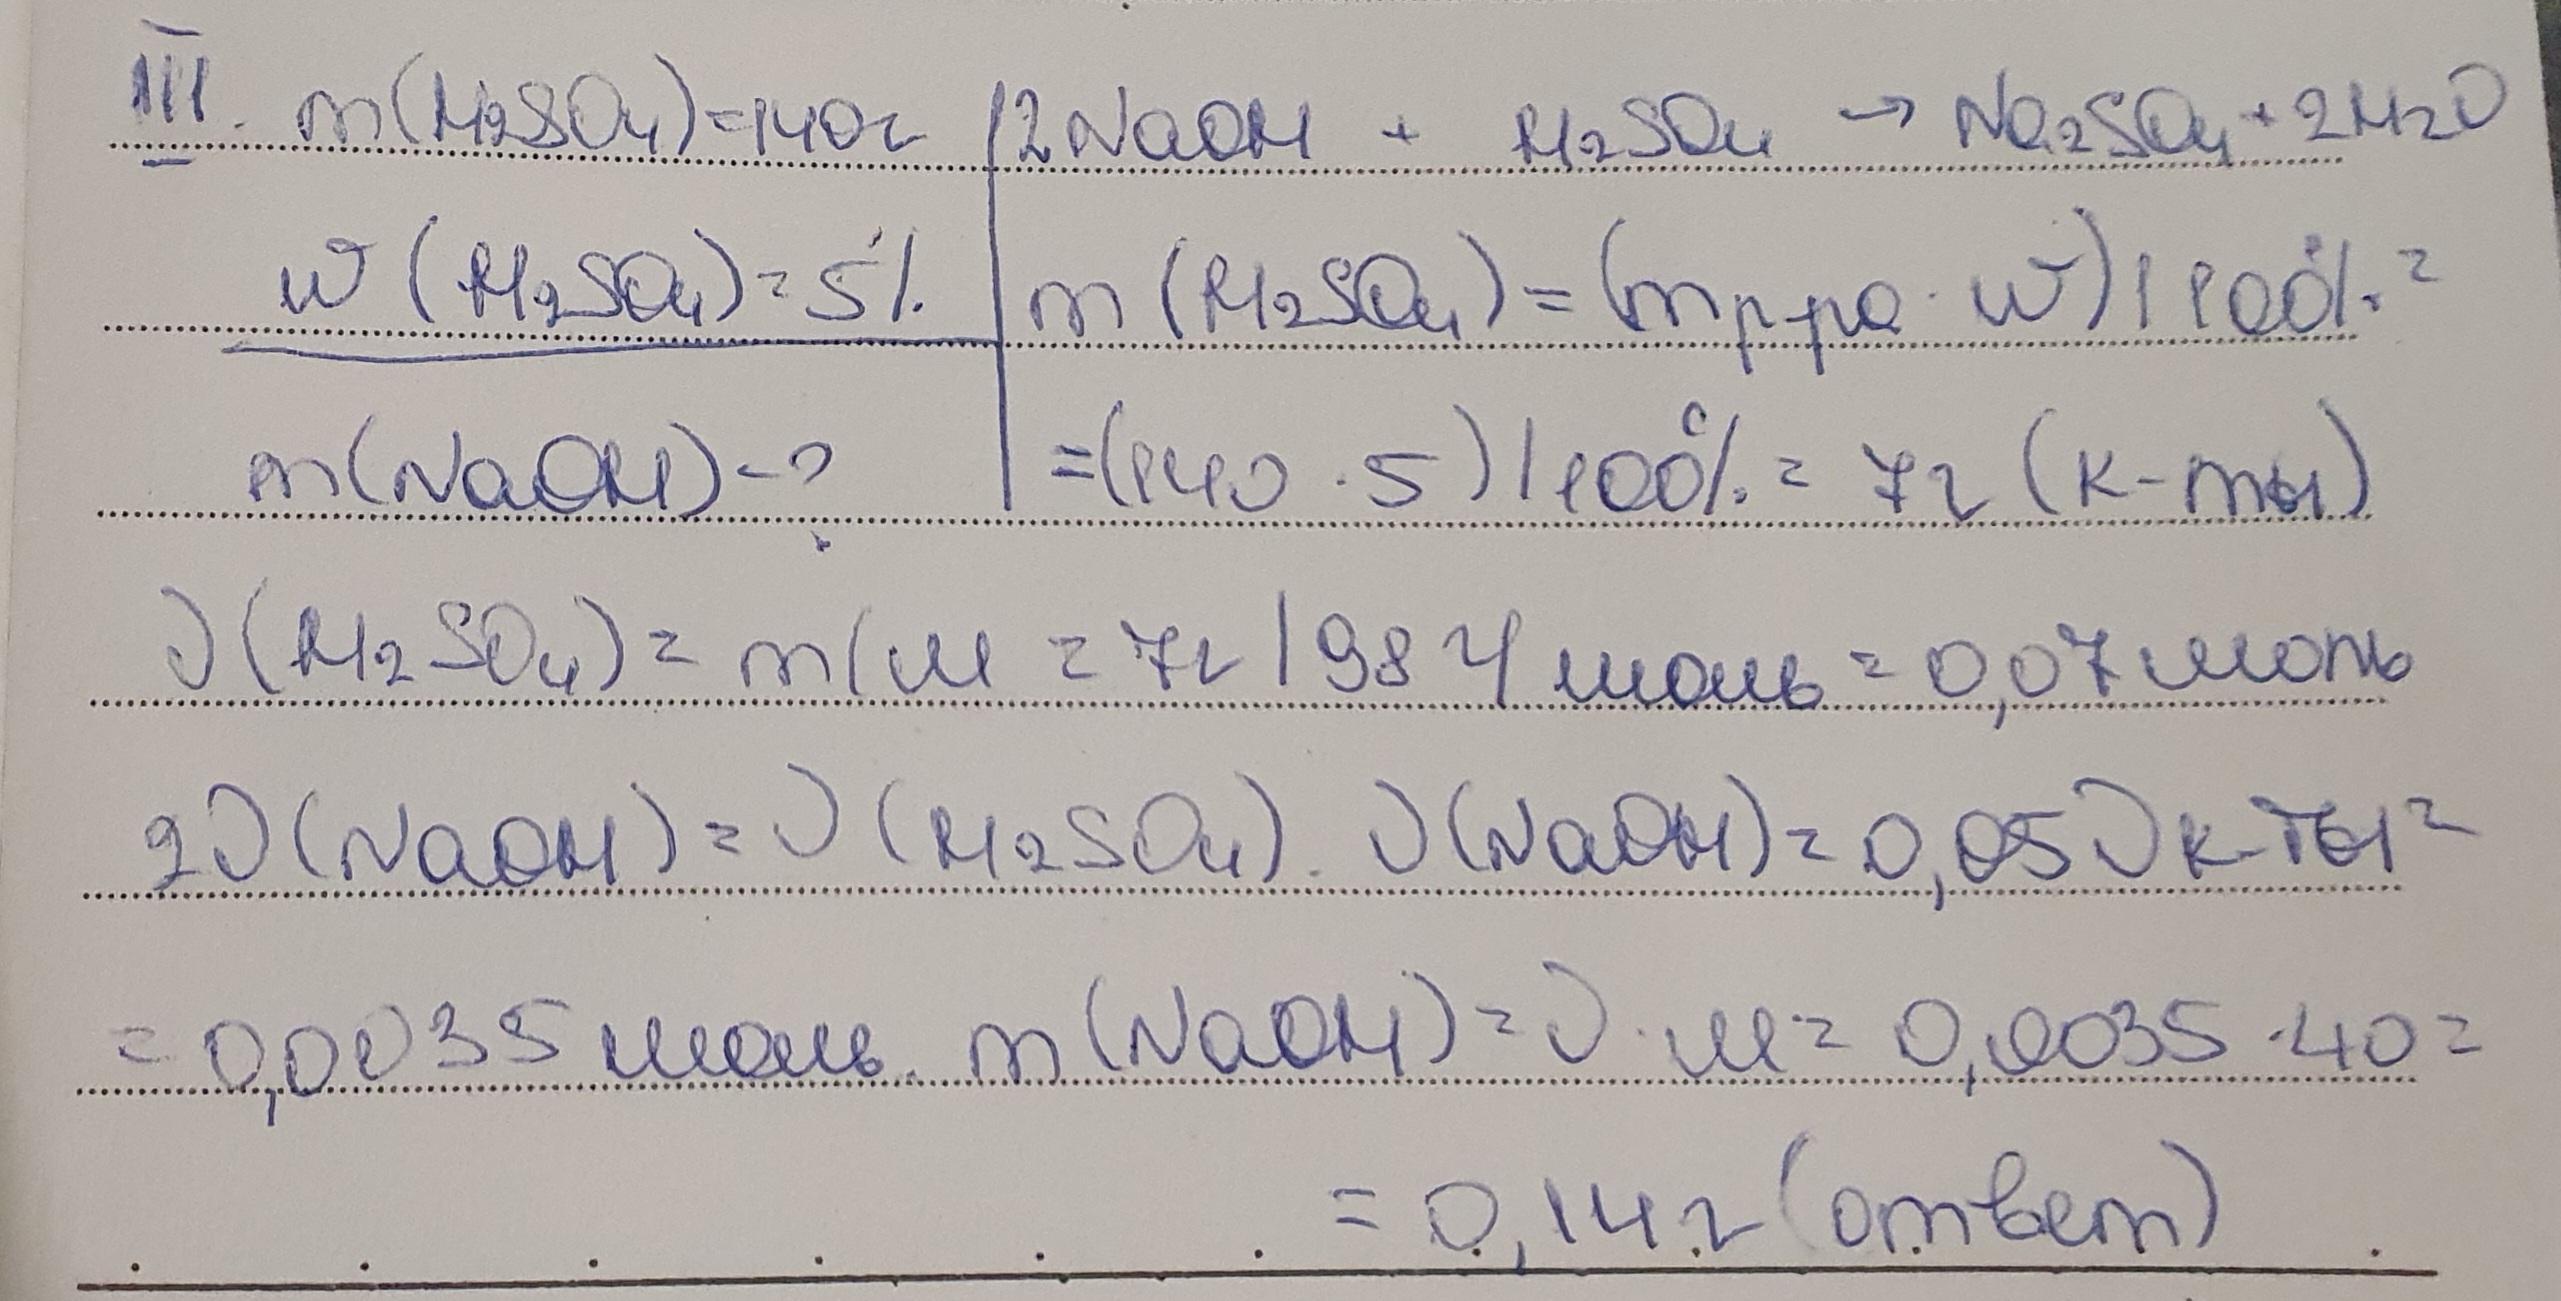 III. m(H2SO4)=140г | 2NaOH + H2SO4 → Na2SO4 + 2H2O
w(H2SO4)=5% | m(H2SO4)=(mр-ра·w)/100%=
m(NaOH)-? | =(140·5)/100%=7г (к-ты)
ν(H2SO4)=m/M=7г/98г/моль=0,07моль
2ν(NaOH)=ν(H2SO4). ν(NaOH)=0,05νк-ты=
=0,0035моль. m(NaOH)=ν·M=0,0035·40=
=0,14г (ответ)